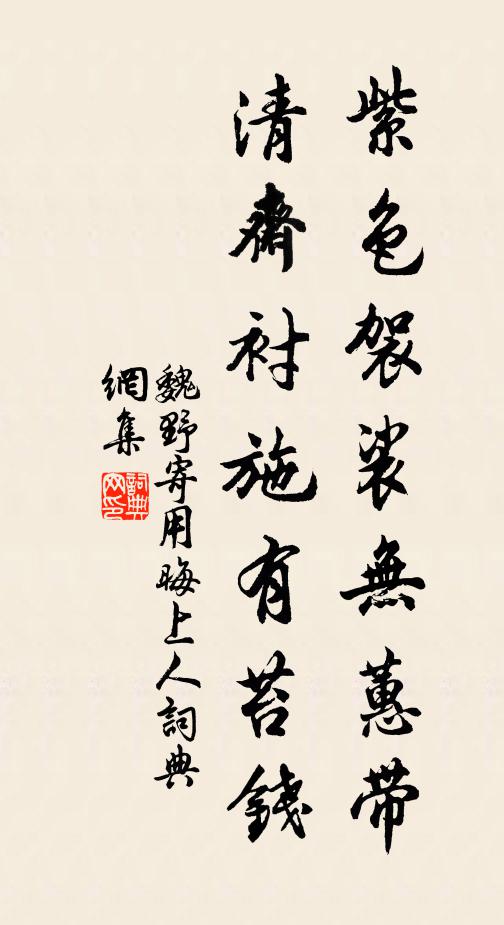 紫色袈裟無蕙帶
清齋衬施有苔錢
魏野寄用晦上人詞典
網集
詞典网印